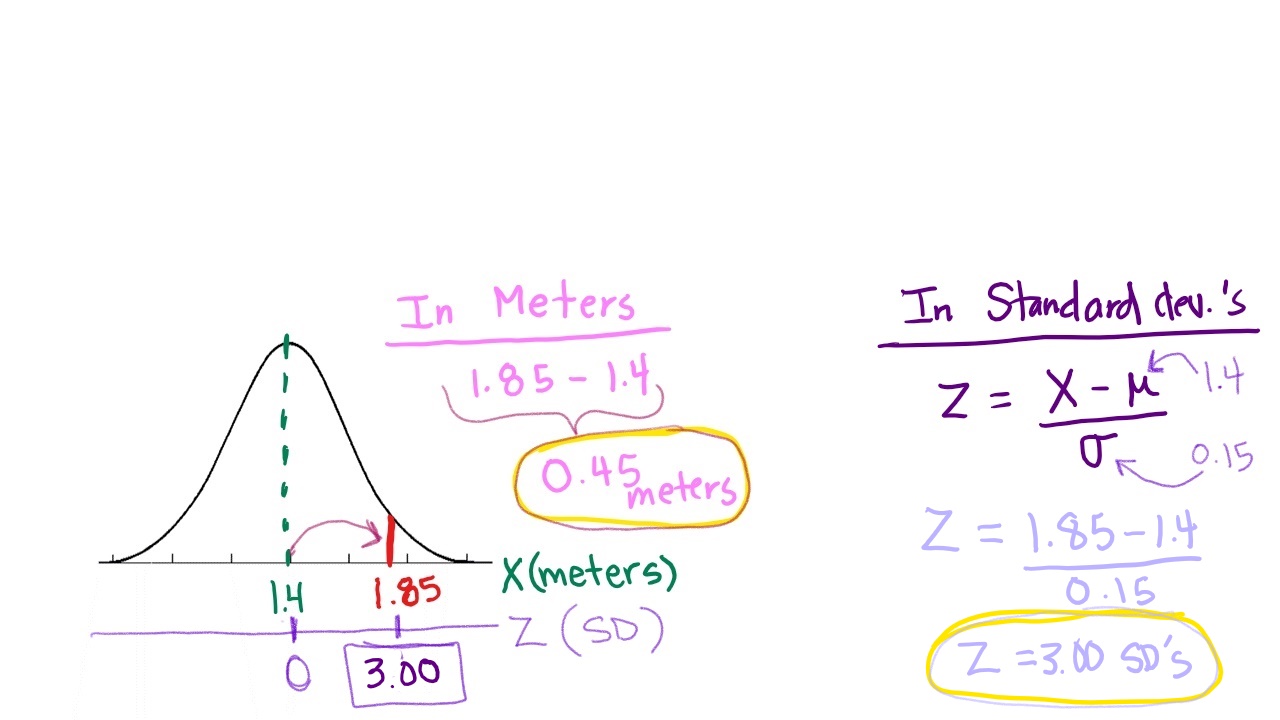 In Meters
1.85 - 1.4
0.45 meters
1.4
1.85
X (meters)
0
3.00
Z (SD)
In Standard dev.'s
Z = X - μ
σ
1.4
0.15
Z = 1.85 - 1.4
0.15
Z = 3.00 SD's